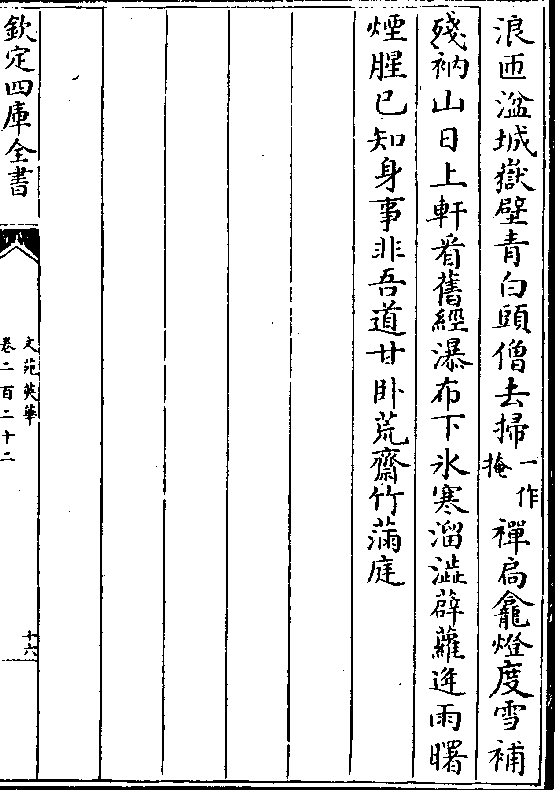 浪匝湓城嶽壁青白頭僧去掃一作掩禪扃龕燈度雪補
殘衲山日上軒看舊經瀑布下氷寒溜澁薜蘿逢雨曙
煙腥已知身事非吾道甘卧荒齋竹滿庭
欽定四庫全書
文苑英華
卷二百二十二
十六